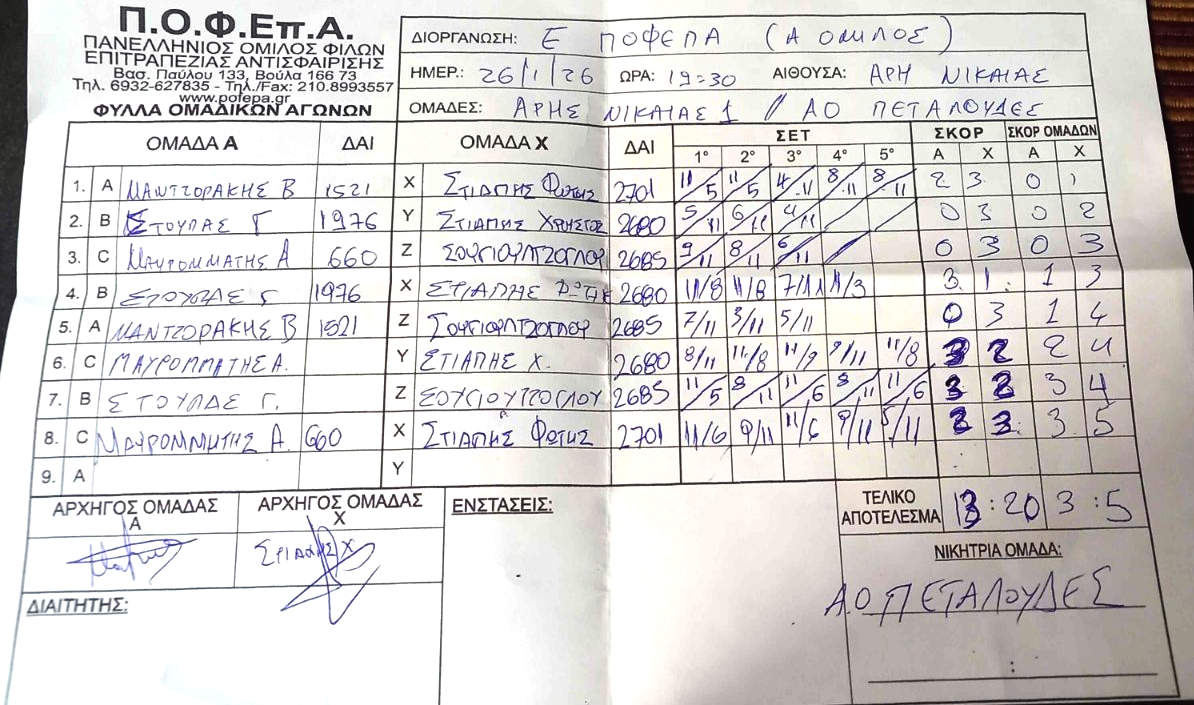 Π.Ο.Φ.Επ.Α.
ΠΑΝΕΛΛΗΝΙΟΣ ΟΜΙΛΟΣ ΦΙΛΩΝ
ΕΠΙΤΡΑΠΕΖΙΑΣ ΑΝΤΙΣΦΑΙΡΙΣΗΣ
Βασ. Παύλου 133, Βούλα 166 73
Τηλ. 6932-627835 - Τηλ./Fax: 210.8993557
www.pofepa.gr
ΦΥΛΛΑ ΟΜΑΔΙΚΩΝ ΑΓΩΝΩΝ
ΔΙΟΡΓΑΝΩΣΗ: Ε ΠΟΦΕΠΑ (Α ΟΜΙΛΟΣ)
ΗΜΕΡ.: 26/1/26 ΩΡΑ: 19:30 ΑΙΘΟΥΣΑ: ΑΡΗ ΝΙΚΑΙΑΣ
ΟΜΑΔΕΣ: ΑΡΗΣ ΝΙΚΑΙΑΣ 1 // ΑΟ ΠΕΤΑΛΟΥΔΕΣ
ΟΜΑΔΑ Α ΔΑΙ ΟΜΑΔΑ Χ ΔΑΙ ΣΕΤ ΣΚΟΡ ΣΚΟΡ ΟΜΑΔΩΝ
1° 2° 3° 4° 5° Α Χ Α Χ
1. Α ΜΑΝΤΖΟΡΑΚΗΣ Β 1521 Χ ΣΤΙΑΠΗΣ Φωτης 2701 11/5 11/5 4/11 8/11 8/11 2 3 0 1
2. Β ΣΤΟΥΠΑΣ Γ 1976 Υ ΣΤΙΑΠΗΣ ΧΡΗΣΤΟΣ 2680 5/11 6/11 4/11 0 3 0 2
3. C ΜΑΥΡΟΜΜΑΤΗΣ Α 660 Ζ ΣΟΥΓΙΟΥΛΤΖΟΓΛΟΥ 2685 9/11 8/11 6/11 0 3 0 3
4. Β ΣΤΟΥΠΑΣ Γ 1976 Χ ΣΤΙΑΠΗΣ ΦΩΤΗΣ 2680 11/8 11/8 7/11 11/3 3 1 1 3
5. Α ΜΑΝΤΖΟΡΑΚΗΣ Β 1521 Ζ ΣΟΥΓΙΟΥΛΤΖΟΓΛΟΥ 2685 7/11 3/11 5/11 0 3 1 4
6. C ΜΑΥΡΟΜΜΑΤΗΣ Α. Υ ΣΤΙΑΠΗΣ Χ. 2680 8/11 11/8 11/9 9/11 11/8 3 2 2 4
7. Β ΣΤΟΥΠΑΣ Γ. Ζ ΣΟΥΓΙΟΥΤΖΟΓΛΟΥ 2685 11/5 8/11 11/6 8/11 11/6 3 2 3 4
8. C ΜΑΥΡΟΜΜΑΤΗΣ Α. 660 Χ ΣΤΙΑΠΗΣ Φωτης 2701 11/6 9/11 11/6 9/11 5/11 2 3 3 5
9. Α Υ
ΑΡΧΗΓΟΣ ΟΜΑΔΑΣ Α ΑΡΧΗΓΟΣ ΟΜΑΔΑΣ Χ ΕΝΣΤΑΣΕΙΣ: ΤΕΛΙΚΟ ΑΠΟΤΕΛΕΣΜΑ 13:20 3:5
ΣΤΙΑΠΗΣ Χ
ΝΙΚΗΤΡΙΑ ΟΜΑΔΑ:
Α.Ο ΠΕΤΑΛΟΥΔΕΣ
ΔΙΑΙΤΗΤΗΣ:
: